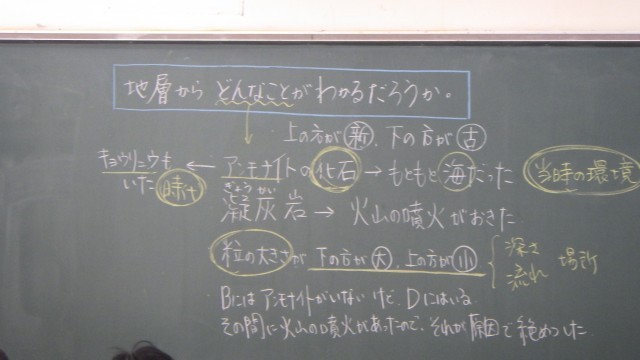 地層から どんなことが わかるだろうか。
上の方が新、下の方が古
キョウリュウも ← アンモナイトの化石 → もともと海だった 当時の環境
いた 時代
ぎょうかい
凝灰岩 → 火山の噴火がおきた
粒の大きさが 下の方が大、上の方が小 { 深さ 流れ 場所
Bにはアンモナイトがいないけど、Dにはいる
その間に火山の噴火があったので、それが原因で絶めつした